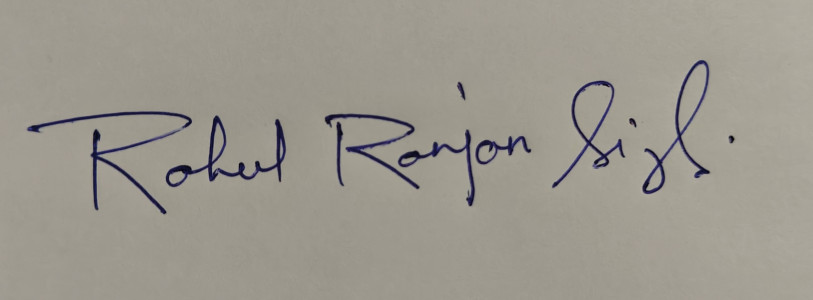 Rahul Ranjan Singh.